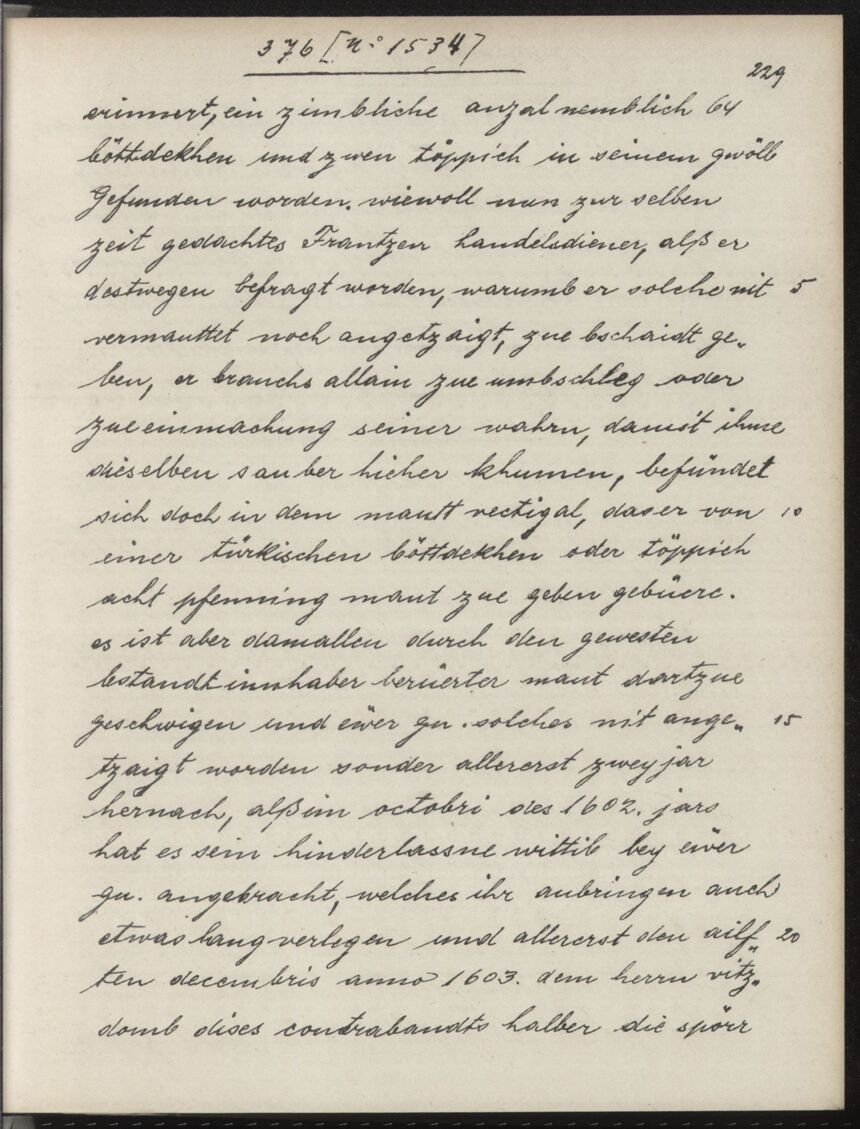 376 [N:o 1534]
229
erinnert, ein zimbliche anzal nemblich 64
böttdekhen und zwen töppich in seinem gwölb
gefunden worden. wiewoll nun zur selben
zeit gedachtes Frantzen handelsdiener, alß er
destwegen befragt worden, warumb er solche nit 5
vermauttet noch angetzaigt, zue bschaidt ge„
ben, er brauchs allain zue umbschleg oder
zue einmachung seiner wahrn, damit ihme
dieselben sauber hieher khumen, befündet
sich doch in dem mautt vectigal, das er von 10
einer türkischen böttdekhen oder töppich
acht pfenning maut zue geben gebüere.
es ist aber damallen durch den gewesten
bstandtinnhaber berüerter maut dartzue
geschwigen und ewer gn. solches nit ange„ 15
tzaigt worden sonder allererst zwey jar
hernach, alß im octobri des 1602. jars
hat es sein hinderlassne wittib bey ewer
gn. angebracht, welches ihr anbringen auch
etwas lang verlegen und allererst den ailf„ 20
ten decembris anno 1603. dem herrn vitz„
domb dises contrabandts halber die spörr